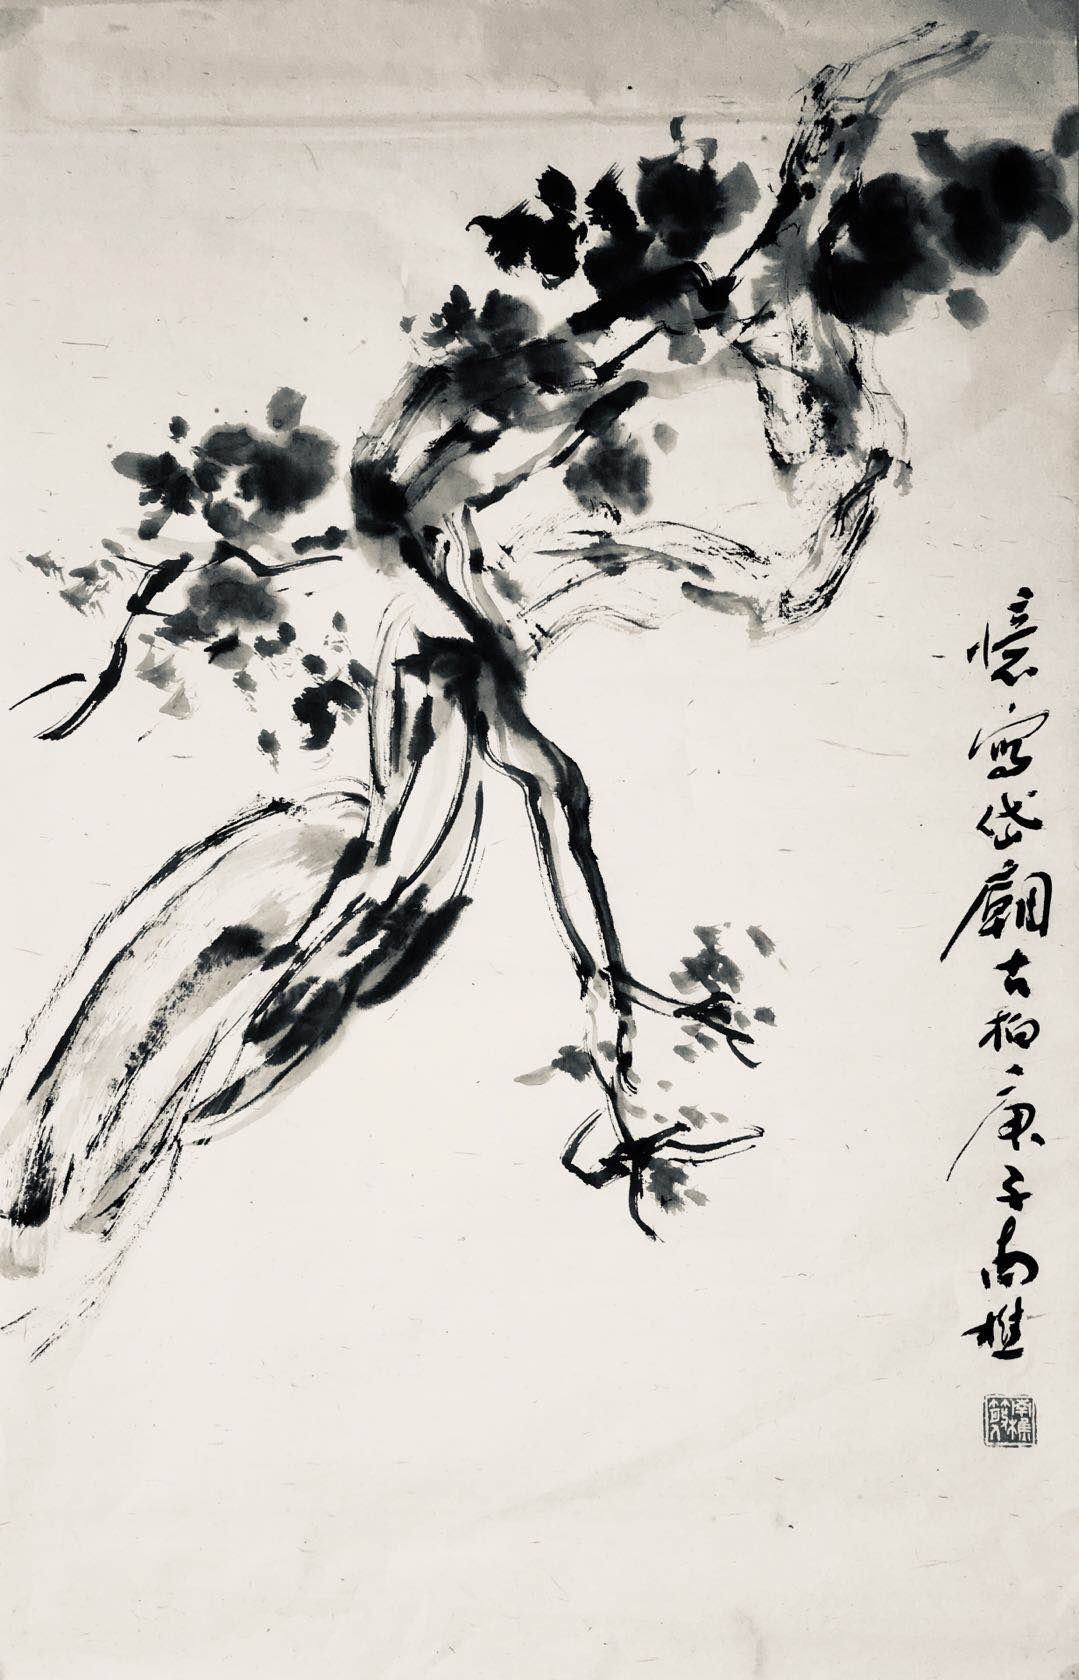 憶寫岱廟古柏庚子南樵
南樵